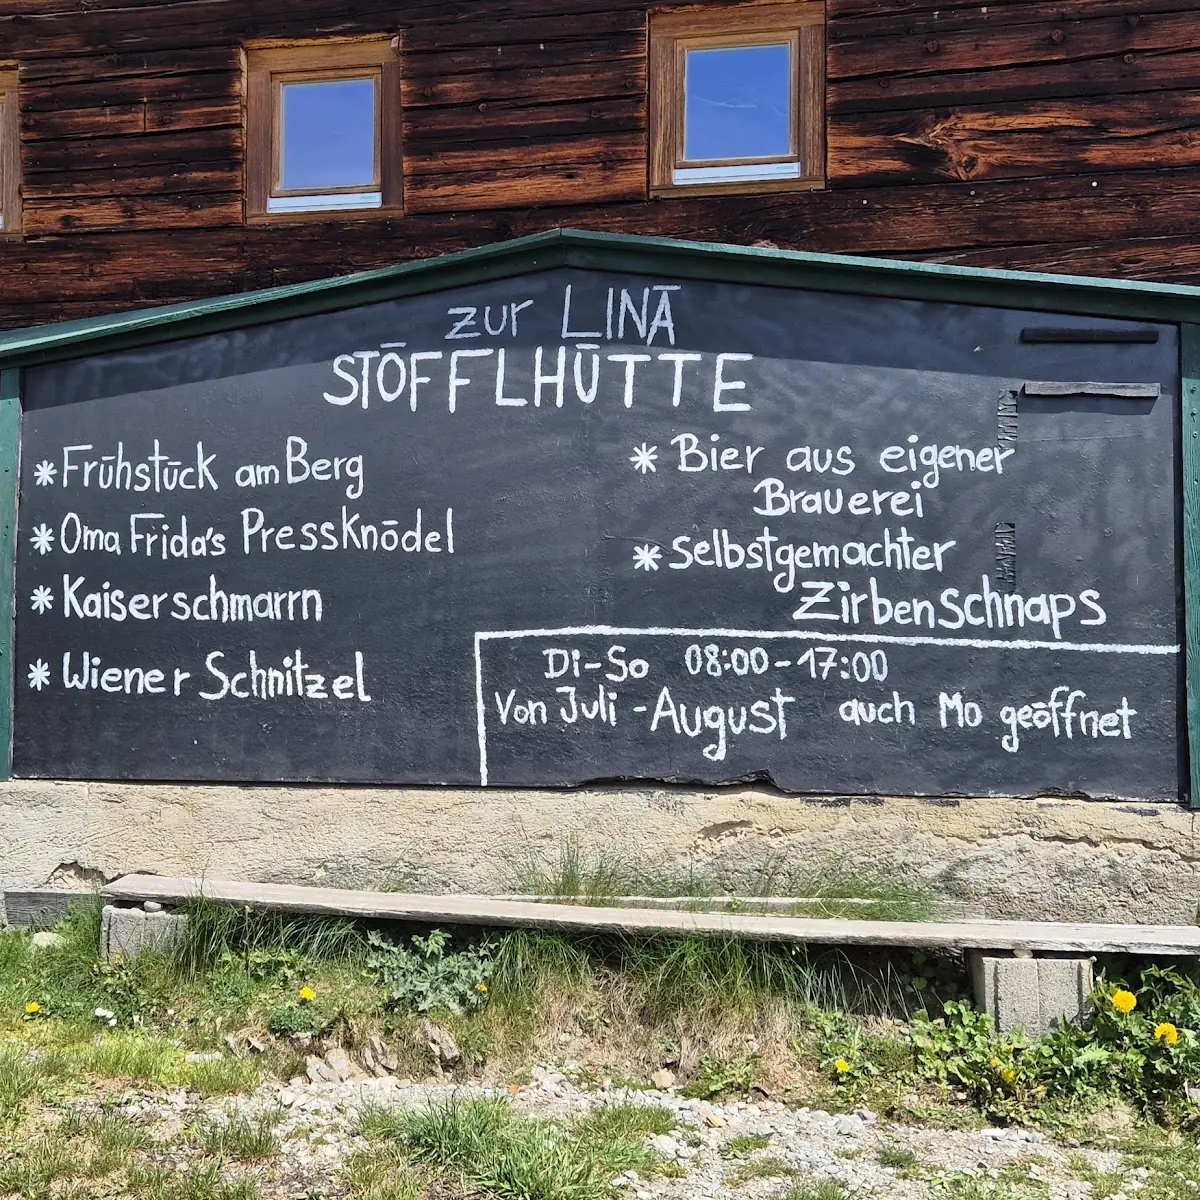 zur LINA
STÖFFLHÜTTE
* Frühstück am Berg
* Oma Frida's Pressknödel
* Kaiserschmarrn
* Wiener Schnitzel
* Bier aus eigener
Brauerei
* Selbstgemachter
Zirbenschnaps
Di-So 08:00-17:00
Von Juli - August auch Mo geöffnet